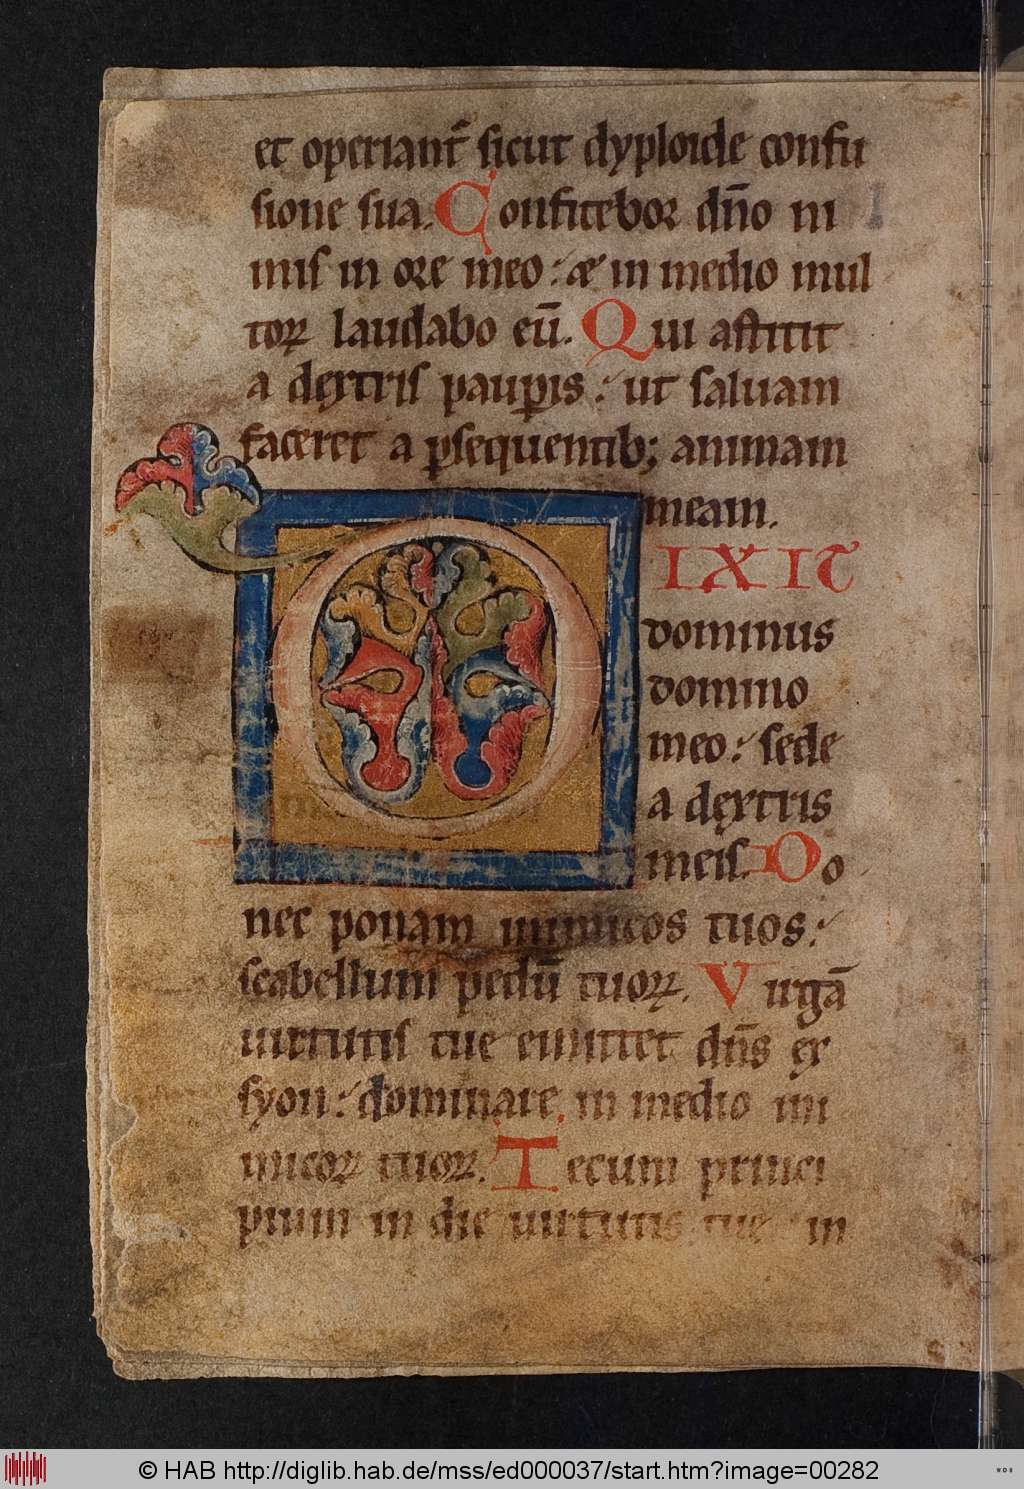 et operiant̄ sicut dyploide confu
sione sua. Confitebor dn̄o ni
mis in ore meo: & in medio mul
toꝝ laudabo eū. Qui astitit
a dęxtris paup̱is: ut saluam
faceret a p̱sequentib; animam
meam.
DIXIT
dominus
domino
meo: sede
a dęxtris
meis. Do
nec ponam inimicos tuos:
scabellum pedū tuoꝝ. Virgā
uirtutis tue emittet dn̄s ex
syon: dominare in medio ini
micoꝝ tuoꝝ. Tecum princi
pium in die uirtutis tue in
© HAB http://diglib.hab.de/mss/ed000037/start.htm?image=00282